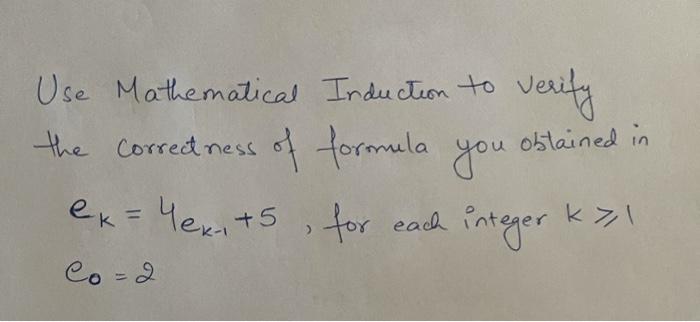 Use Mathematical Induction to verify
the correctness of formula you obtained in
eₖ = 4eₖ₋₁ + 5 , for each integer k ⩾ 1
e₀ = 2